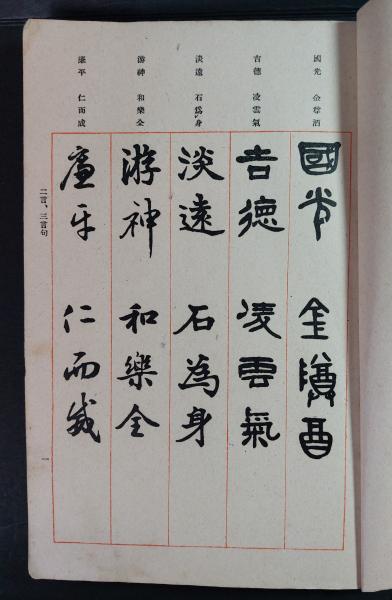 國光 金尊酒
吉德 凌雲氣
淡遠 石為身
游神 和樂全
廉平 仁而威
國光 金尊酉
吉德 凌雲氣
淡遠 石為身
游神 和樂全
廉平 仁而威
二言、三言句
一